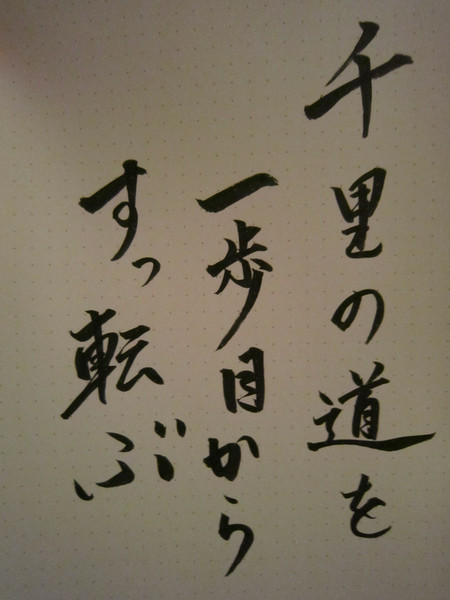 千里の道を
一歩目から
すっ転ぶ